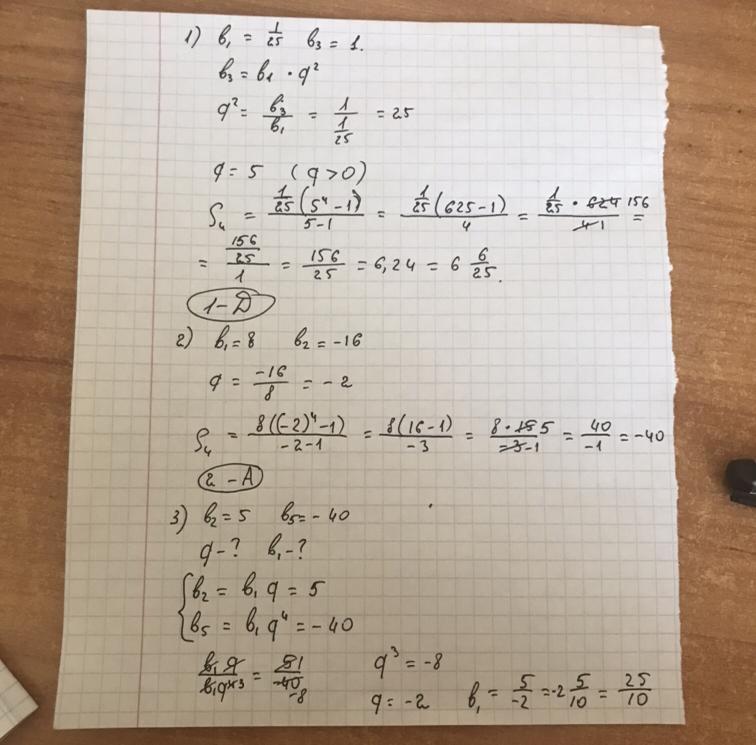 1) b₁ = 1/25 b₃ = 1.
b₃ = b₁ · q²
q² = b₃/b₁ = 1/(1/25) = 25
q = 5 (q > 0)
S₄ = (1/25 (5⁴ - 1))/(5 - 1) = (1/25 (625 - 1))/4 = (1/25 · 624 156)/(4 1) =
= (156/25)/1 = 156/25 = 6,24 = 6 6/25.
1 - Д
2) b₁ = 8 b₂ = -16
q = -16/8 = -2
S₄ = (8((-2)⁴ - 1))/(-2 - 1) = (8(16 - 1))/(-3) = (8 · 15 5)/(-3 -1) = 40/(-1) = -40
2 - А
3) b₂ = 5 b₅ = -40
q - ? b₁ - ?
{ b₂ = b₁ q = 5
b₅ = b₁ q⁴ = -40
(b₁ q)/(b₁ q⁴ ³) = (5 1)/(-40 -8) q³ = -8
q = -2 b₁ = 5/(-2) = -2 5/10 = 25/10